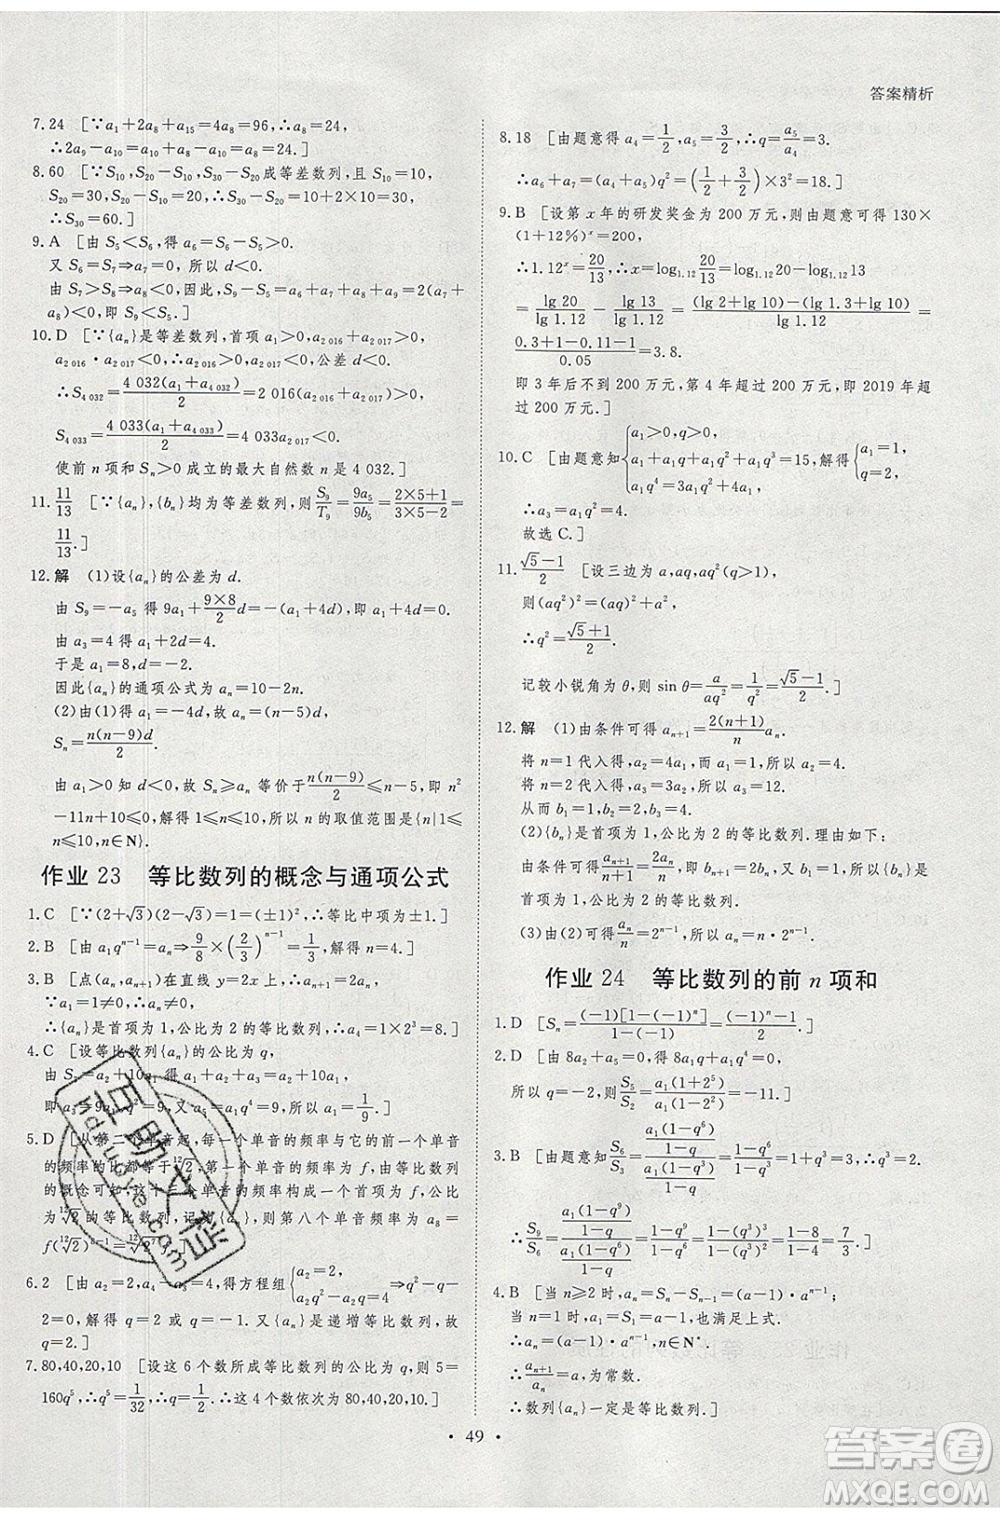 答案精析
7.24 [∵a₁+2a₈+a₁₅=4a₈=96,∴a₈=24,
∴2a₉-a₁₀=a₈=24.]
8.60 [∵S₁₀,S₂₀-S₁₀,S₃₀-S₂₀成等差数列,且S₁₀=10,
S₂₀=30,S₂₀-S₁₀=20,∴S₃₀-30=10+2×10=30,
∴S₃₀=60.]
9.A [由S₅<S₆,得a₆=S₆-S₅>0.
又S₆>S₇⇒a₇<0,所以d<0.
由S₇=S₈⇒a₈=0,因此,S₉-S₅=a₆+a₇+a₈+a₉=2(a₇+
a₈)<0,即S₉<S₅.]
10.D [∵{aₙ}是等差数列,首项a₁>0,a₂ ₀₁₆+a₂ ₀₁₇>0,
a₂ ₀₁₆·a₂ ₀₁₇<0,∴a₂ ₀₁₆>0,a₂ ₀₁₇<0,公差d<0.
∴S₄ ₀₃₂=4 032(a₁+a₄ ₀₃₂)/2=2 016(a₂ ₀₁₆+a₂ ₀₁₇)>0,
S₄ ₀₃₃=4 033(a₁+a₄ ₀₃₃)/2=4 033a₂ ₀₁₇<0.
使前n项和Sₙ>0成立的最大自然数n是4 032.]
11. 11/13 [∵{aₙ},{bₙ}均为等差数列,则S₉/T₉=9a₅/9b₅=(2×5+1)/(3×5-2)=
11/13.]
12.解 (1)设{aₙ}的公差为d.
由S₉=-a₅得9a₁+(9×8)/2 d=-(a₁+4d),
由a₃=4得a₁+2d=4.
于是a₁=8,d=-2.
因此{aₙ}的通项公式为aₙ=10-2n.
(2)由(1)得a₁=-4d,故aₙ=(n-5)d,
Sₙ=n(n-9)d/2.
由a₁>0知d<0,故Sₙ≥aₙ等价于n(n-9)/2≤n-5,即n²
-11n+10≤0,解得1≤n≤10,所以n的取值范围是{n|1≤
n≤10,n∈N}.
作业23 等比数列的概念与通项公式
1.C [∵(2+√3)(2-√3)=1=(±1)²,∴等比中项为±1.]
2.B [由a₁qⁿ⁻¹=aₙ⇒9/8×(2/3)ⁿ⁻¹=1/3,解得n=4.]
3.B [点(aₙ,aₙ₊₁)在直线y=2x上,∴aₙ₊₁=2aₙ,
∵a₁=1≠0,∴aₙ≠0,
∴{aₙ}是首项为1,公比为2的等比数列,∴a₄=1×2³=8.]
4.C [设等比数列{aₙ}的公比为q,
由S₃=a₂+10a₁得a₁+a₂+a₃=a₂+10a₁,
即a₃=9a₁,q²=9,又a₅=a₁q⁴=9,所以a₁=1/9.]
5.D [从第二个单音起,每一个单音的频率与它的前一个单音
的频率的比都等于¹²√2,第一个单音的频率为f,由等比数列
的概念可知,这十三个单音的频率构成一个首项为f,公比
为¹²√2的等比数列,记为{aₙ},则第八个单音频率为a₈=
f(¹²√2)⁸⁻¹=¹²√2⁷f.]
6.2 [a₂=2,a₄-a₃=4,得方程组{a₂=2, a₂q²-a₂q=4,⇒q²-q-
2=0,解得q=2或q=-1.又{aₙ}是递增等比数列,故
q=2.]
7.80,40,20,10 [设这6个数所成等比数列的公比为q,则5=
160q⁵,∴q⁵=1/32,∴q=1/2.∴这4个数依次为80,40,20,10.]
8.18 [由题意得a₄=1/2,a₅=3/2,∴q=a₅/a₄=3.
∴a₆+a₇=(a₄+a₅)q²=(1/2+3/2)×3²=18.]
9.B [设第x年的研发奖金为200万元,则由题意可得130×
(1+12%)ˣ=200,
∴1.12ˣ=20/13,∴x=log₁.₁₂20/13=log₁.₁₂20-log₁.₁₂13
=lg 20/lg 1.12-lg 13/lg 1.12=((lg 2+lg 10)-(lg 1.3+lg 10))/lg 1.12=
(0.3+1-0.11-1)/0.05=3.8.
即3年后不到200万元,第4年超过200万元,即2019年超
过200万元.]
10.C [由题意知{a₁>0,q>0, a₁+a₁q+a₁q²+a₁q³=15, a₁q⁴=3a₁q²+4a₁, 解得{a₁=1, q=2,
∴a₃=a₁q²=4.
故选C.]
11. (√5-1)/2 [设三边为a,aq,aq²(q>1),
则(aq²)²=(aq)²+a²,
∴q²=(√5+1)/2.
记较小锐角为θ,则sin θ=a/aq²=1/q²=(√5-1)/2.]
12.解 (1)由条件可得aₙ₊₁=2(n+1)/n aₙ.
将n=1代入得,a₂=4a₁,而a₁=1,所以a₂=4.
将n=2代入得,a₃=3a₂,所以a₃=12.
从而b₁=1,b₂=2,b₃=4.
(2){bₙ}是首项为1,公比为2的等比数列.理由如下:
由条件可得aₙ₊₁/(n+1)=2aₙ/n,即bₙ₊₁=2bₙ,又b₁=1,
所以{bₙ}是首项为1,公比为2的等比数列.
(3)由(2)可得aₙ/n=2ⁿ⁻¹,所以aₙ=n·2ⁿ⁻¹.
作业24 等比数列的前n项和
1.D [Sₙ=(-1)[1-(-1)ⁿ]/(1-(-1))=((-1)ⁿ-1)/2.]
2.D [由8a₂+a₅=0得8a₁q+a₁q⁴=0,
所以q=-2,则S₅/S₂=a₁(1+2⁵)/a₁(1-2²)=-11.]
3.B [由题意知S₆/S₃=(a₁(1-q⁶)/(1-q))/(a₁(1-q³)/(1-q))=(1-q⁶)/(1-q³)=1+q³=3,∴q³=2.
∴S₉/S₆=(a₁(1-q⁹)/(1-q))/(a₁(1-q⁶)/(1-q))=(1-q⁹)/(1-q⁶)=(1-2³)/(1-2²)=7/3.]
4.B [当n≥2时,aₙ=Sₙ-Sₙ₋₁=(a-1)·aⁿ⁻¹;
当n=1时,a₁=S₁=a-1,满足上式.
∴aₙ=(a-1)·aⁿ⁻¹,n∈N*.
∴aₙ₊₁/aₙ=a为常数.
∴数列{aₙ}一定是等比数列.]
· 49 ·
互助文档
hdzuoye.com
答案圈
MXQE.COM